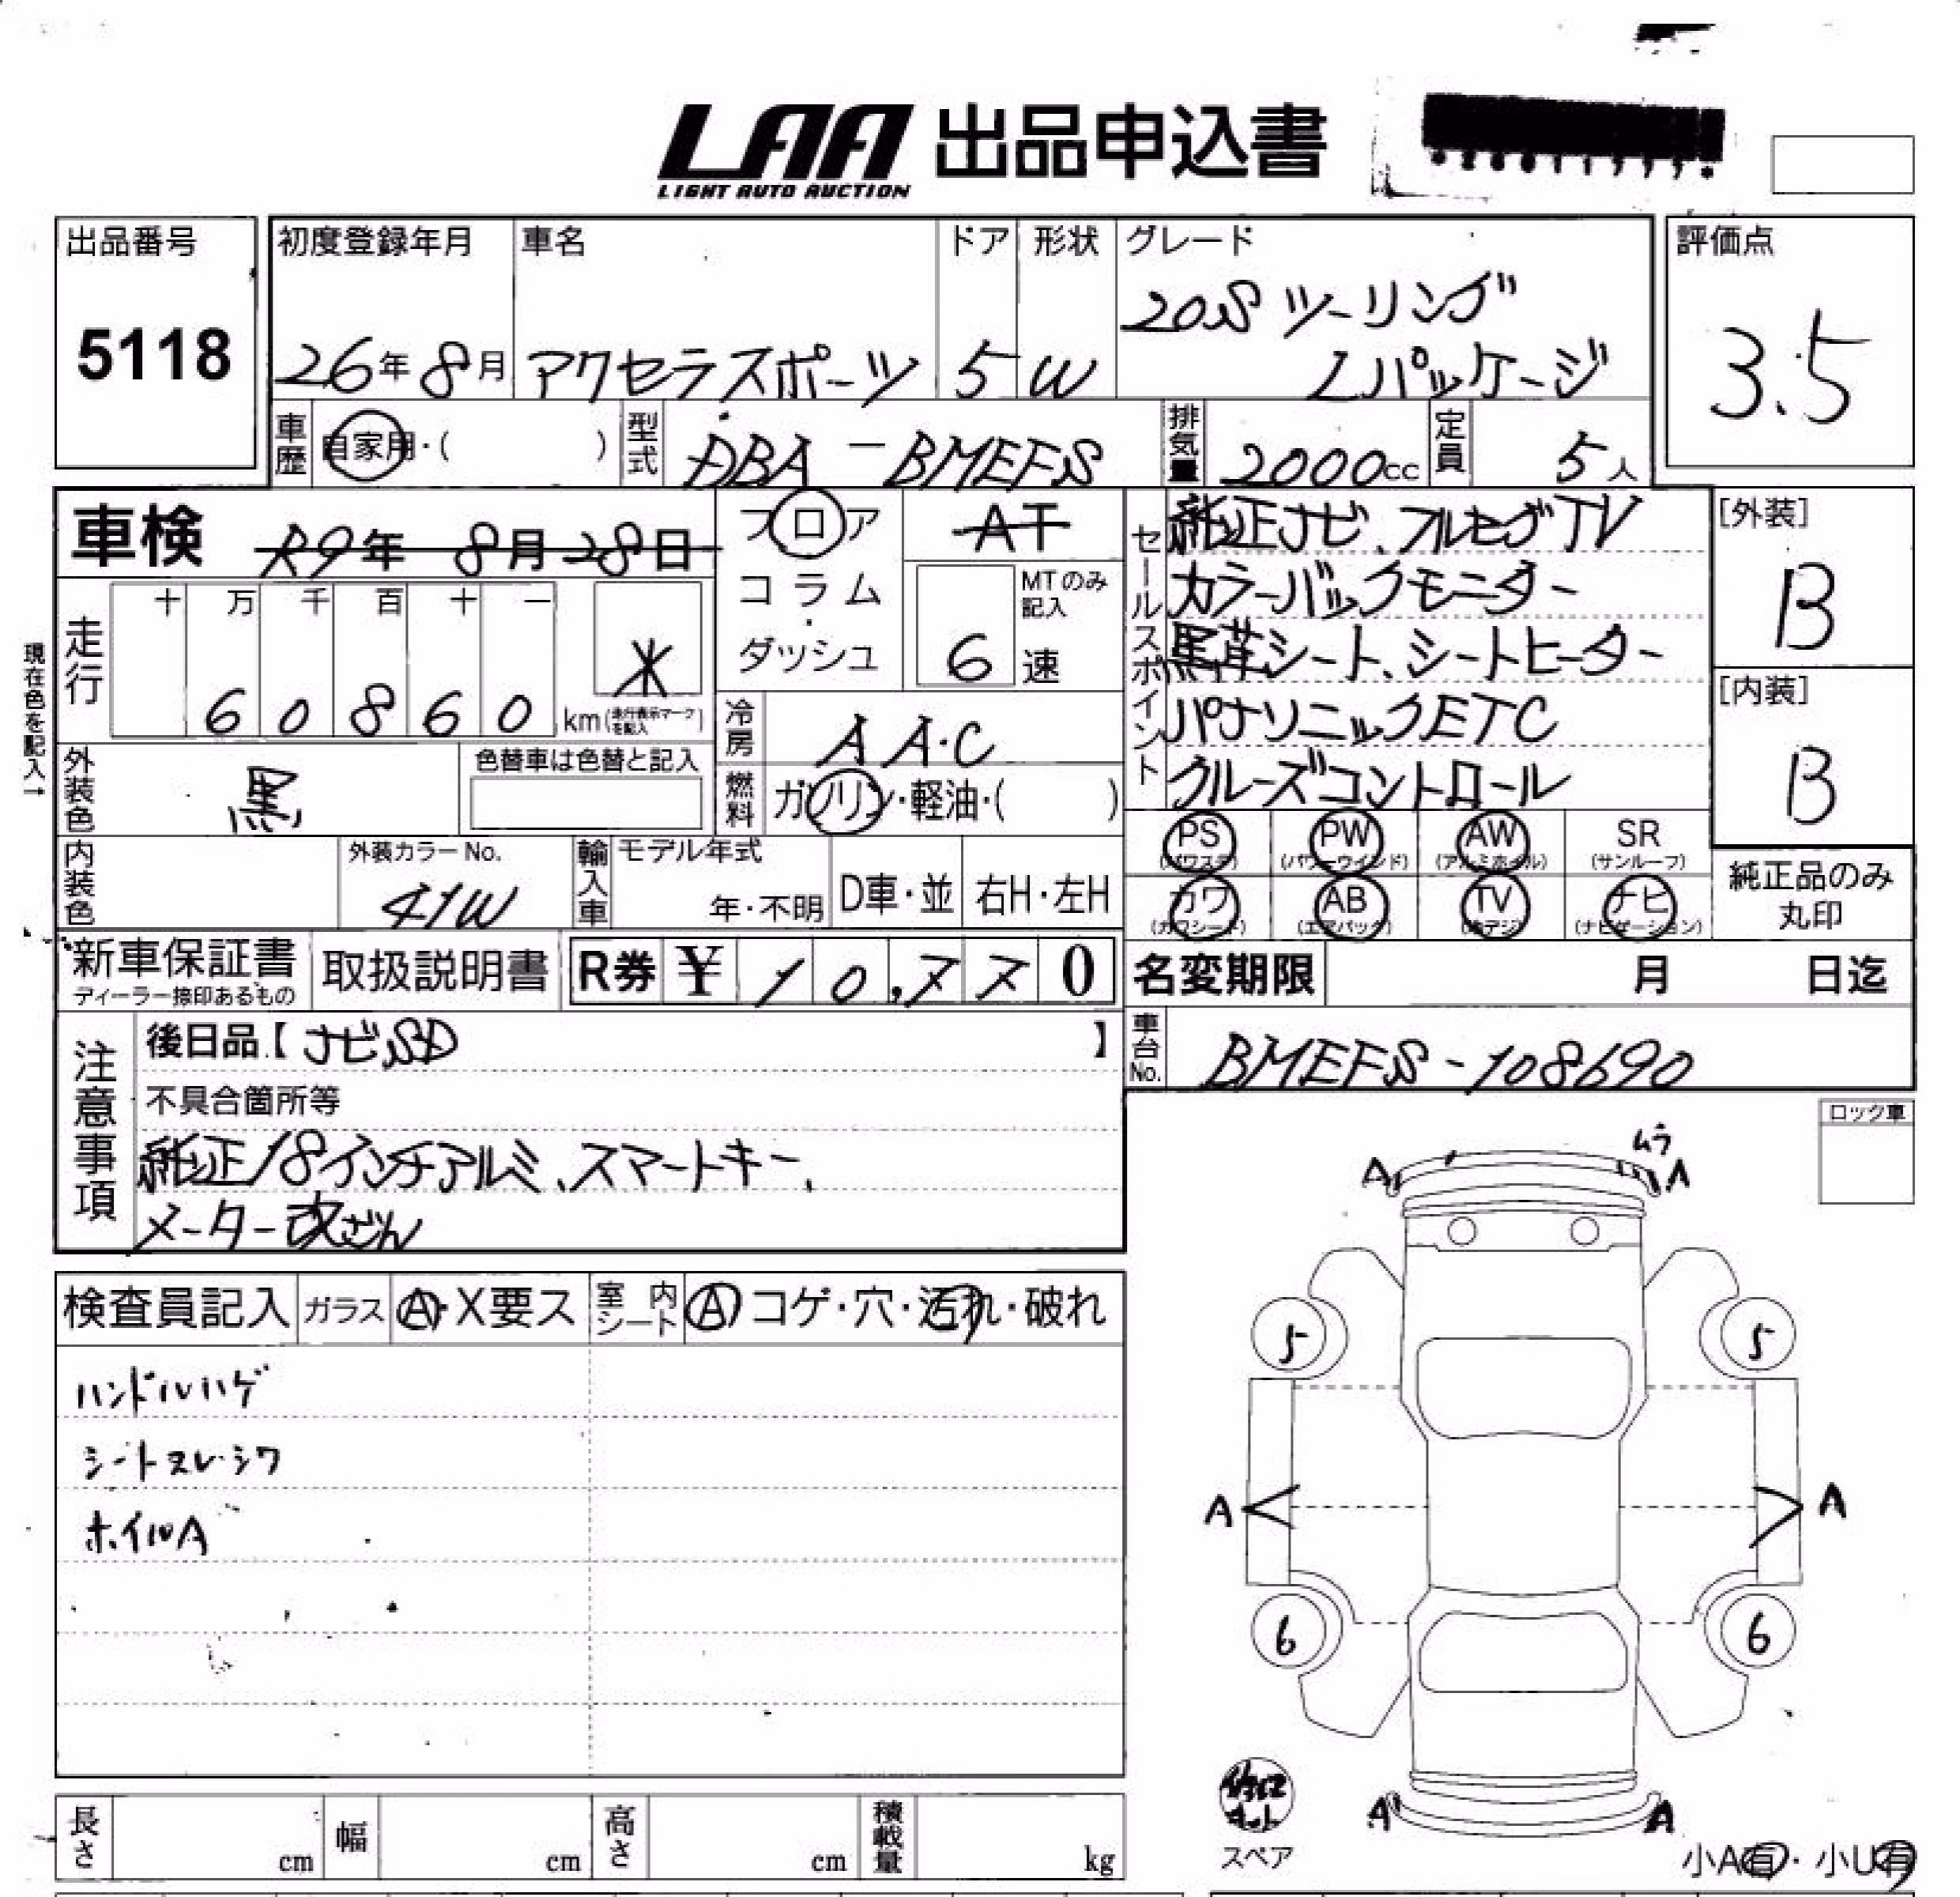 LAA 出品申込書
LIGHT AUTO AUCTION
出品番号
5118
初度登録年月
26年8月
車名
アクセラスポーツ
ドア
5
形状
W
グレード
20Sツーリング
Lパッケージ
評価点
3.5
車歴
自家用・( )
型式
DBA-BMEFS
排気量
2000cc
定員
5人
車検
R9年 8月28日
フロア
コラム
・
ダッシュ
AT
MTのみ
記入
6速
セールスポイント
純正ナビ、フルセグTV
カラーバックモニター
黒革シート、シートヒーター
パナソニックETC
クルーズコントロール
[外装]
B
[内装]
B
現在色を記入→
走行
十 万 千 百 十 一
6 0 8 6 0 km(走行表示マークを記入)
*
冷房
AA・C
燃料
ガソリン・軽油・( )
外装色
黒
色替車は色替と記入
内装色
外装カラーNo.
41W
輸入車
モデル年式
年・不明
D車・並
右H・左H
PS (パワステ)
PW (パワーウインド)
AW (アルミホイル)
SR (サンルーフ)
カワ (カワシート)
AB (エアバック)
TV (地デジ)
ナビ (ナビゲーション)
純正品のみ
丸印
新車保証書
ディーラー捺印あるもの
取扱説明書
R券 ¥ 10,770
名変期限 月 日迄
車台No.
BMEFS-108690
注意事項
後日品【ナビSD】
不具合箇所等
純正18インチアルミ、スマートキー、
メーター改ざん
ロック車
ムラ
A A
検査員記入
ガラス
A・X要ス
室内シート
A コゲ・穴・汚れ・破れ
ハンドルハゲ
シートスレ・シワ
ホイルA
5 5
A A
6 6
A A
スペア
小A有・小U有
長さ cm
幅 cm
高さ cm
積載量 kg